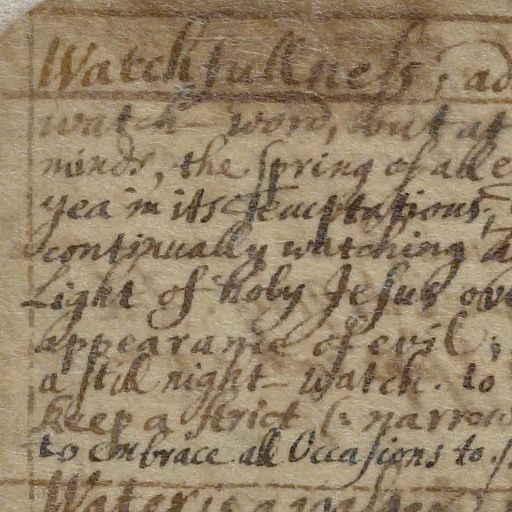 Watchfullness, ad
watch word, but at
minds, the spring of all e
yea in its Temptations,
continually watching
Light of holy Jesus ove
appearance of evil;
a still night-watch. to
keep a strict & narrow
to embrace all Occasions to
Water is a